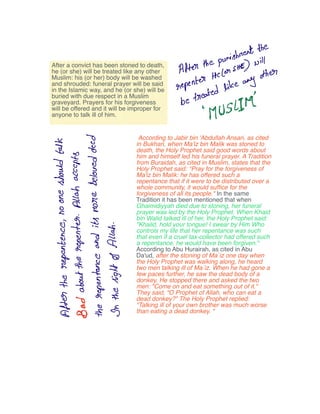 After a convict has been stoned to death,
he (or she) will be treated like any other
Muslim: his (or her) body will be washed
and shrouded: funeral prayer will be said
in the Islamic way, and he (or she) will be
buried with due respect in a Muslim
graveyard. Prayers for his forgiveness
will be offered and it will be improper for
anyone to talk ill of him.
After the punishment the
repenter He(or SHE) will
be treated like any other
'MUSLIM'
According to Jabir bin 'Abdullah Ansari, as cited
in Bukhari, when Ma'iz bin Malik was stoned to
death, the Holy Prophet said good words about
him and himself led his funeral prayer. A Tradition
from Buraidah, as cited in Muslim, states that the
Holy Prophet said: "Pray for the forgiveness of
Ma'iz bin Malik: he has offered such a
repentance that if it were to be distributed over a
whole community, it would suffice for the
forgiveness of all its people." In the same
Tradition it has been mentioned that when
Ghamidiyyah died due to stoning, her funeral
prayer was led by the Holy Prophet. When Khalid
bin Walid talked ill of her, the Holy Prophet said:
"Khalid, hold your tongue! I swear by Him Who
controls my life that her repentance was such
that even if a cruel tax-collector had offered such
a repentance, he would have been forgiven."
According to Abu Hurairah, as cited in Abu
Da'ud, after the stoning of Ma`iz one day when
the Holy Prophet was walking along, he heard
two men talking ill of Ma`iz. When he had gone a
few paces further, he saw the dead body of a
donkey. He stopped there and asked the two
men: "Come on and eat something out of it."
They said, "O Prophet of Allah, who can eat a
dead donkey?" The Holy Prophet replied:
"Talking ill of your own brother was much worse
than eating a dead donkey. "
After the repentence, no one should talk
Bad about the repenter. Allah accepts
the repentence and its more beloved deed
In the sight of Allah.